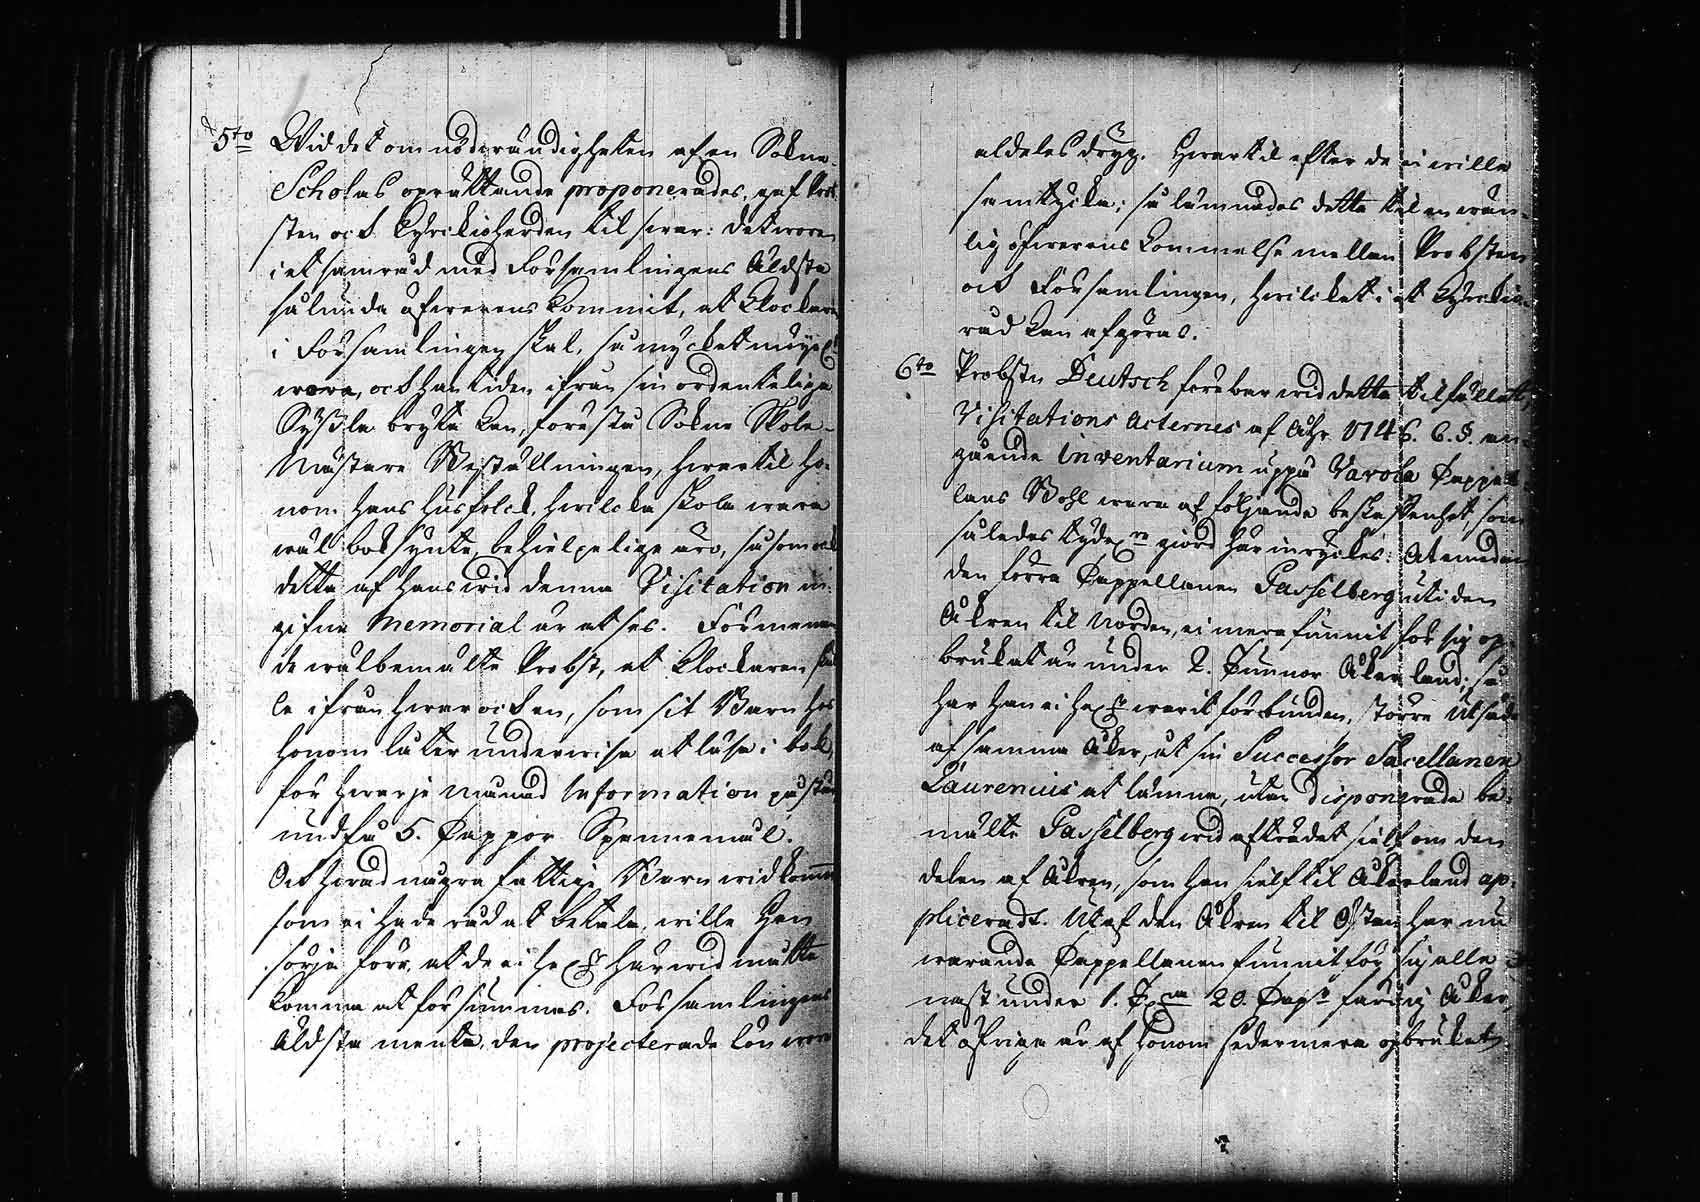 5to Wid det om nödwändigheten af en Sokne
Scholas oprättande proponerades, gaf Prob-
sten och Kyrckioherden til swar: det wore
i et samråd med Församlingens Äldsta
således öfwerens kommit, at Klockaren
i Församlingen skal, så mycket möjel:t
wara, och han tiden ifrån sin ordenteliga
Syßla bryta kan, förestå Sokne Skole-
Mästare Beställningen, hwartil ho-
nom hans husfolck, hwilcka skola wara
wäl bok synte, behielpelige äro, såsom ock
detta af hans wid denna Visitation in-
gifne Memorial är at ses. Förmenan-
de wälbemälte Probst, at Klockaren skul-
le ifrån hwar och en, som sit Barn hos
honom låter underwisa at läsa i bok,
för hwarje månad Information påstå
undfå 5. Kappor Spannemål.
Och hwad några fattige Barn widkomma
som ei hade råd at betala, wille han
sörja före, at de ei heller härwid måtte
komma at försummas. Församlingens
Äldsta mente, den projecterade lön wara
aldeles dryg. Hwartil efter de ei wille
samtycka; så lämnades detta til en wän-
lig öfwerens kommelse mellan Probsten
och Församlingen, hwilcket i et Kyrckio-
råd kan afgöras.
6to Probsten Deutsch förebar wid detta tilfället,
Visitations Acternes af Åhr 1746. 6. §. an-
gående Inventarium uppå Vavola Cappel-
lans Bohl wara af följande beskaffenhet, som
således tydel:n giord här inryckes: At emedan
den förra Cappellanen Gasselberg uti den
Åkren til Norden, ei mera funnit för sig op-
brukat än under 2. Tunnor Åker land; så
har han ei heller warit förbunden, större Utsäde
af samma Åker, åt sin Successor Sacellanen
Laurenius at lämna, utan disponerade be-
mälte Gasselberg wid afträdet sielf om den
delen af Åkren, som han sielf til Åkerland ap-
plicerade. Utaf den Åkren til Östan har nu
warande Cappellanen funnit för sig alle
nast under 1. T:na 20. Cap:r färdig Åker,
det öfriga är af honom sedermera opbrukat,